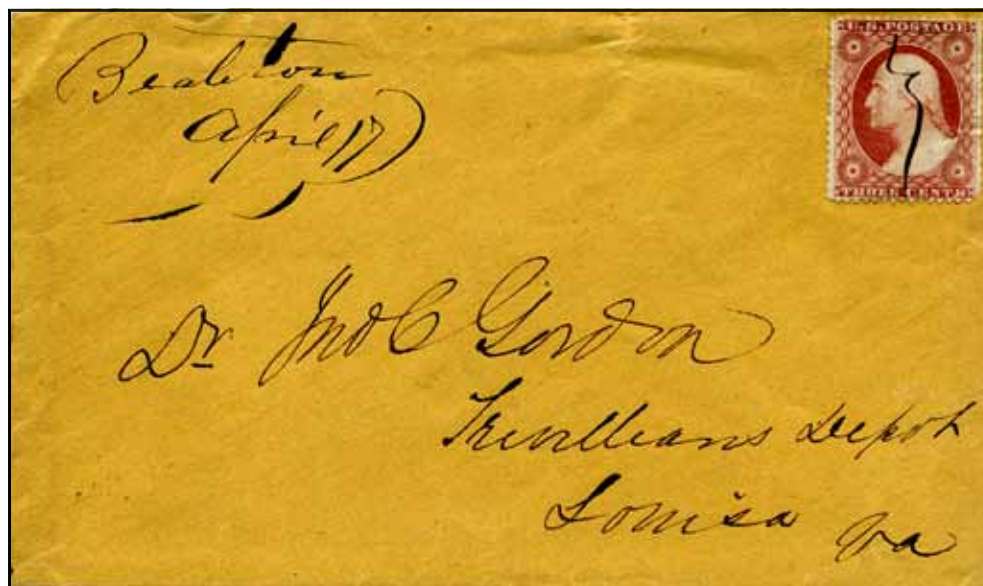 Bealeton
April 17
U.S. POSTAGE
THREE CENTS
Dr Jno C Gordon
Trevillians Depot
Louisa Va